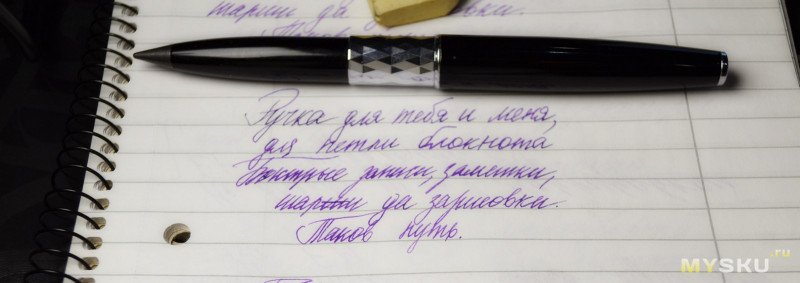 да зарисовки.
Ручка для тебя и меня,
для петли блокнота
быстрые записи, заметки,
шаржи да зарисовки.
Таков путь.
MYSKU.ru